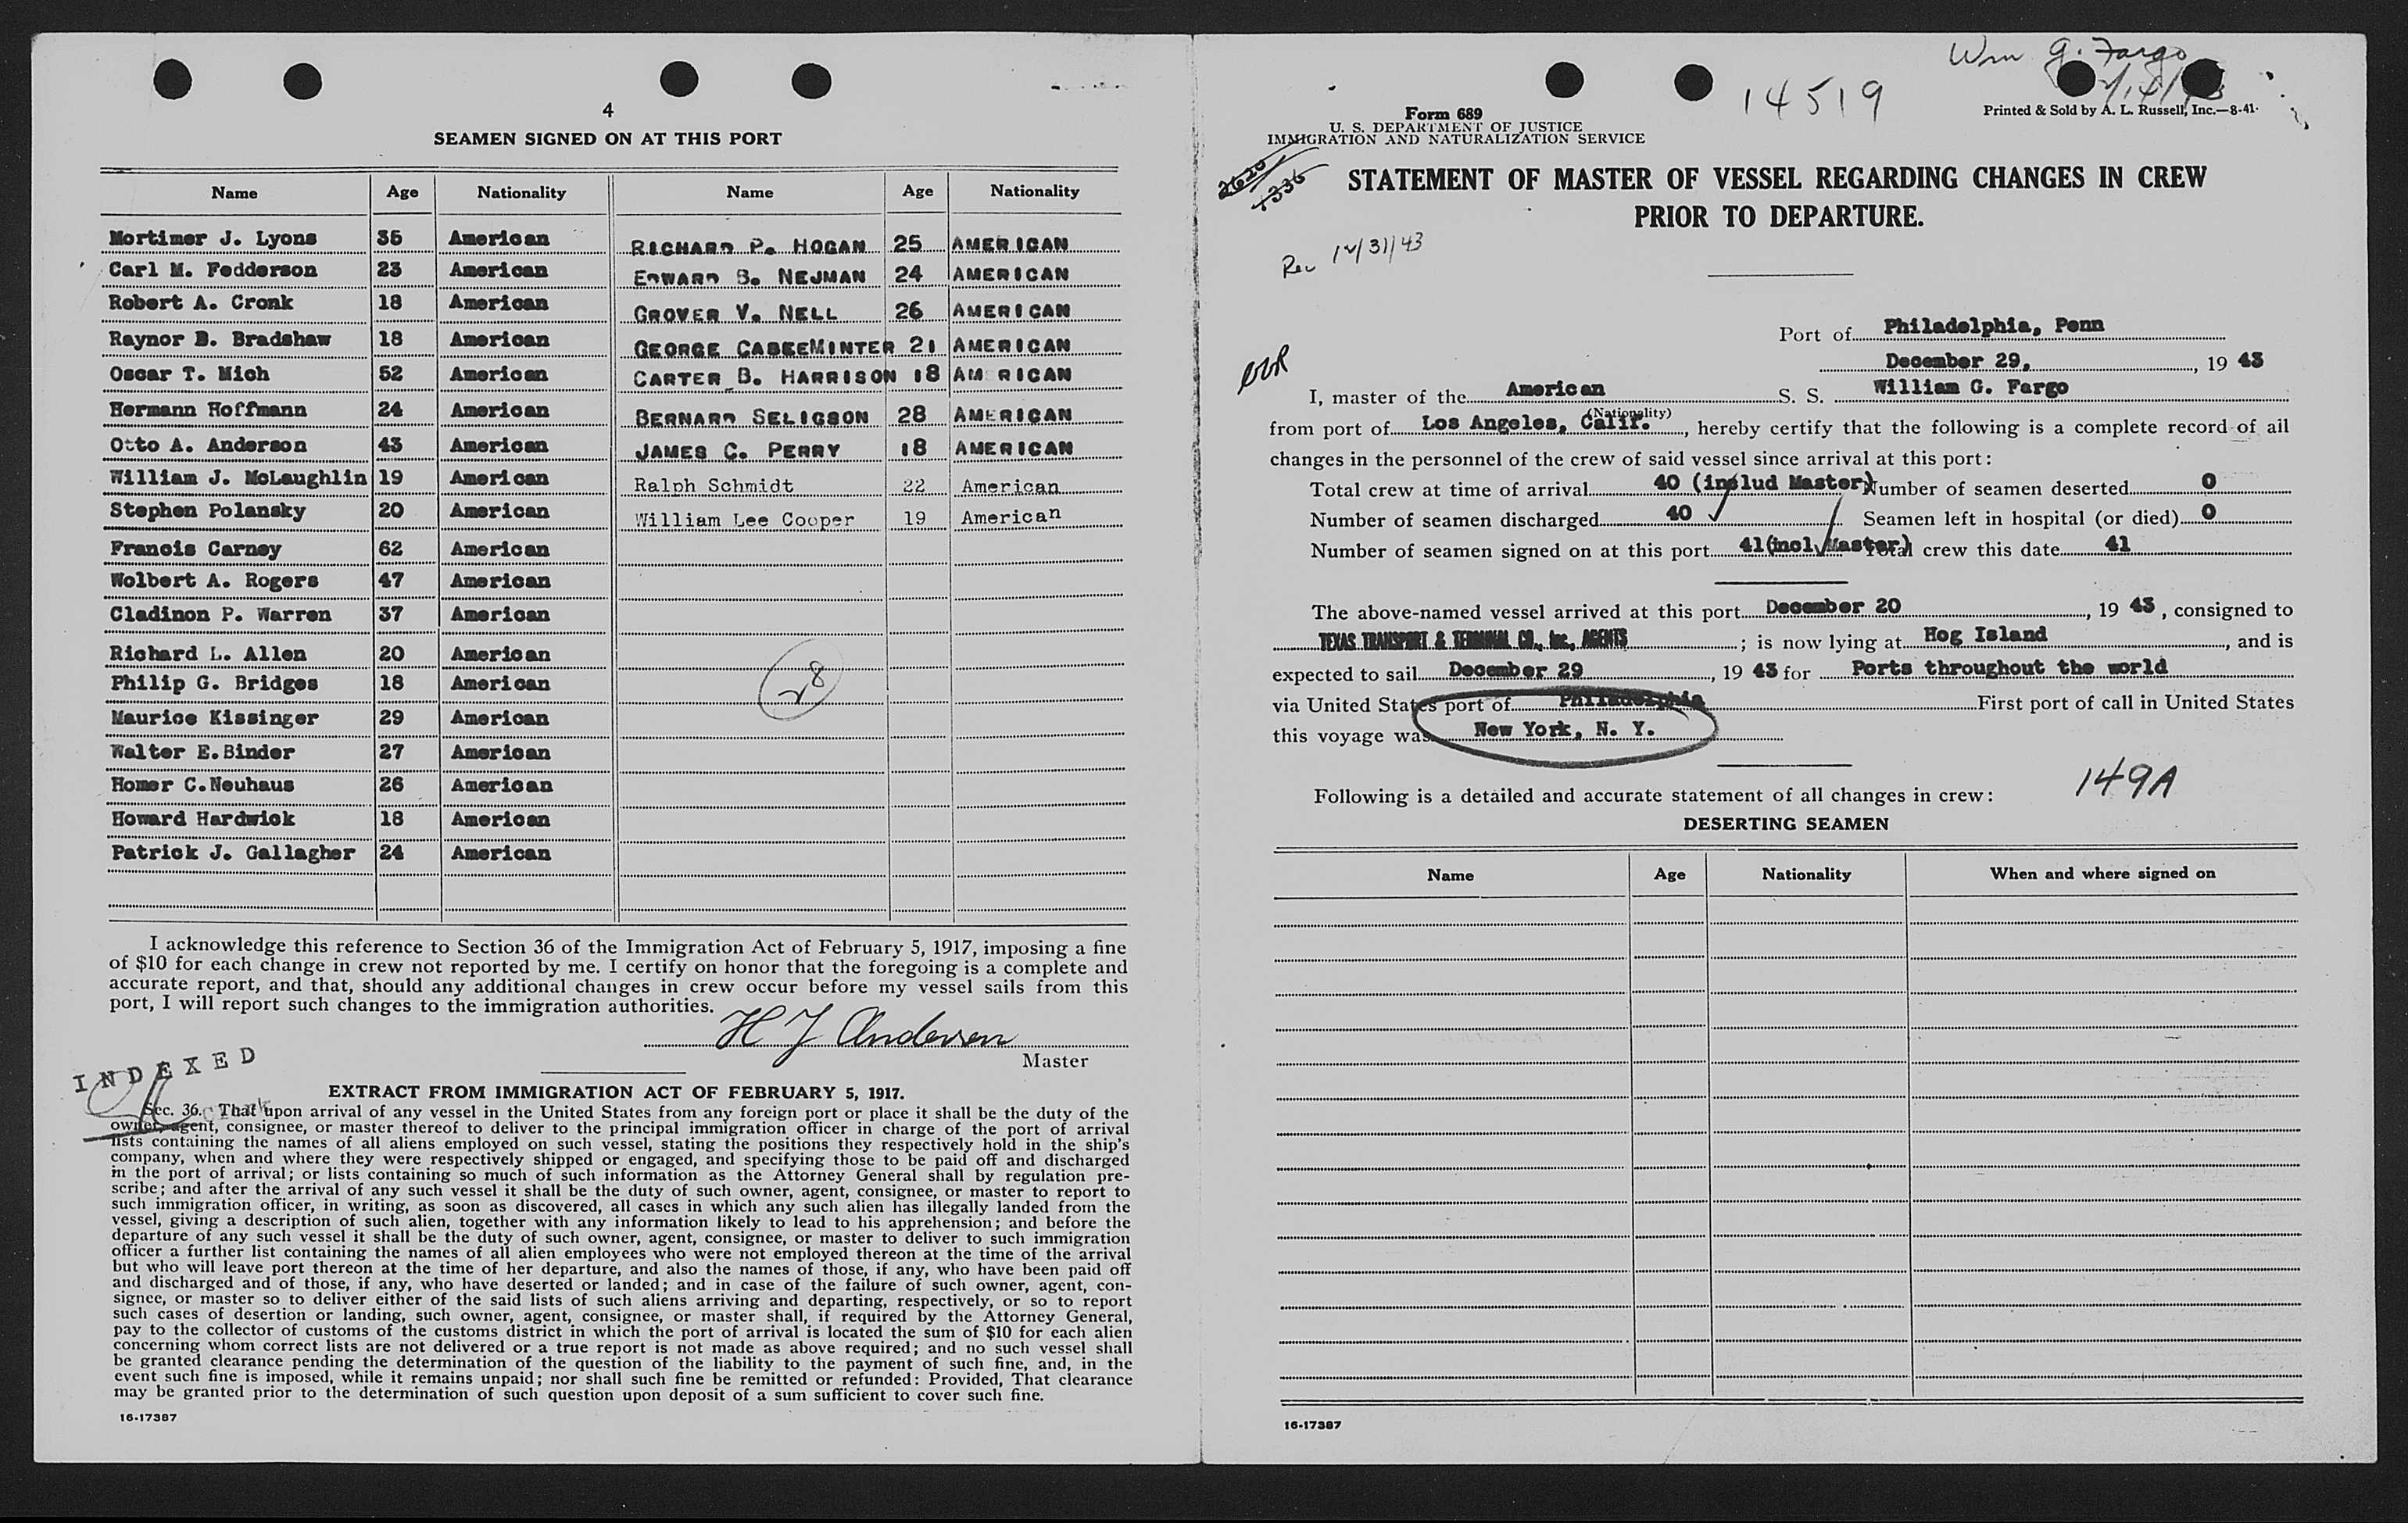 4
SEAMEN SIGNED ON AT THIS PORT
Name Age Nationality Name Age Nationality
Mortimer J. Lyons 35 American RICHARD P. HOGAN 25 AMERICAN
Carl M. Fedderson 23 American EDWARD B. NEJMAN 24 AMERICAN
Robert A. Cronk 18 American GROVER V. NELL 26 AMERICAN
Raynor B. Bradshaw 18 American GEORGE CABEEMINTER 21 AMERICAN
Oscar T. Mich 52 American CARTER B. HARRISON 18 AM RICAN
Hermann Hoffmann 24 American BERNARD SELIGSON 28 AMERICAN
Otto A. Anderson 43 American JAMES C. PERRY 18 AMERICAN
William J. McLaughlin 19 American Ralph Schmidt 22 American
Stephen Polansky 20 American William Lee Cooper 19 American
Francis Carney 62 American
Wolbert A. Rogers 47 American
Cladinon P. Warren 37 American
Richard L. Allen 20 American
Philip G. Bridges 18 American
28
Maurice Kissinger 29 American
Walter E. Binder 27 American
Homer C. Neuhaus 26 American
Howard Hardwick 18 American
Patrick J. Gallagher 24 American
I acknowledge this reference to Section 36 of the Immigration Act of February 5, 1917, imposing a fine
of $10 for each change in crew not reported by me. I certify on honor that the foregoing is a complete and
accurate report, and that, should any additional changes in crew occur before my vessel sails from this
port, I will report such changes to the immigration authorities.
H J Andersen
Master
INDEXED
EXTRACT FROM IMMIGRATION ACT OF FEBRUARY 5, 1917.
Sec. 36. That upon arrival of any vessel in the United States from any foreign port or place it shall be the duty of the
owner, agent, consignee, or master thereof to deliver to the principal immigration officer in charge of the port of arrival
lists containing the names of all aliens employed on such vessel, stating the positions they respectively hold in the ship's
company, when and where they were respectively shipped or engaged, and specifying those to be paid off and discharged
in the port of arrival; or lists containing so much of such information as the Attorney General shall by regulation pre-
scribe; and after the arrival of any such vessel it shall be the duty of such owner, agent, consignee, or master to report to
such immigration officer, in writing, as soon as discovered, all cases in which any such alien has illegally landed from the
vessel, giving a description of such alien, together with any information likely to lead to his apprehension; and before the
departure of any such vessel it shall be the duty of such owner, agent, consignee, or master to deliver to such immigration
officer a further list containing the names of all alien employees who were not employed thereon at the time of the arrival
but who will leave port thereon at the time of her departure, and also the names of those, if any, who have been paid off
and discharged and of those, if any, who have deserted or landed; and in case of the failure of such owner, agent, con-
signee, or master so to deliver either of the said lists of such aliens arriving and departing, respectively, or so to report
such cases of desertion or landing, such owner, agent, consignee, or master shall, if required by the Attorney General,
pay to the collector of customs of the customs district in which the port of arrival is located the sum of $10 for each alien
concerning whom correct lists are not delivered or a true report is not made as above required; and no such vessel shall
be granted clearance pending the determination of the question of the liability to the payment of such fine, and, in the
event such fine is imposed, while it remains unpaid; nor shall such fine be remitted or refunded: Provided, That clearance
may be granted prior to the determination of such question upon deposit of a sum sufficient to cover such fine.
16-17387
Wm G. Fargo
14519
Form 689
U. S. DEPARTMENT OF JUSTICE
IMMIGRATION AND NATURALIZATION SERVICE
Printed & Sold by A. L. Russell, Inc.—8-41
STATEMENT OF MASTER OF VESSEL REGARDING CHANGES IN CREW
PRIOR TO DEPARTURE.
Rec 12/31/43
Port of Philadelphia, Penn
December 29, , 19 43
I, master of the American S. S. William G. Fargo
(Nationality)
from port of Los Angeles, Calif. , hereby certify that the following is a complete record of all
changes in the personnel of the crew of said vessel since arrival at this port:
Total crew at time of arrival 40 (includ Master) Number of seamen deserted 0
Number of seamen discharged 40 Seamen left in hospital (or died) 0
Number of seamen signed on at this port 41(incl Master) Total crew this date 41
The above-named vessel arrived at this port December 20 , 19 43 , consigned to
TEXAS TRANSPORT & TERMINAL CO., Inc., AGENTS ; is now lying at Hog Island , and is
expected to sail December 29 , 19 43 for Ports throughout the world
via United States port of Philadelphia First port of call in United States
this voyage was New York, N. Y.
149A
Following is a detailed and accurate statement of all changes in crew:
DESERTING SEAMEN
Name Age Nationality When and where signed on
16-17387